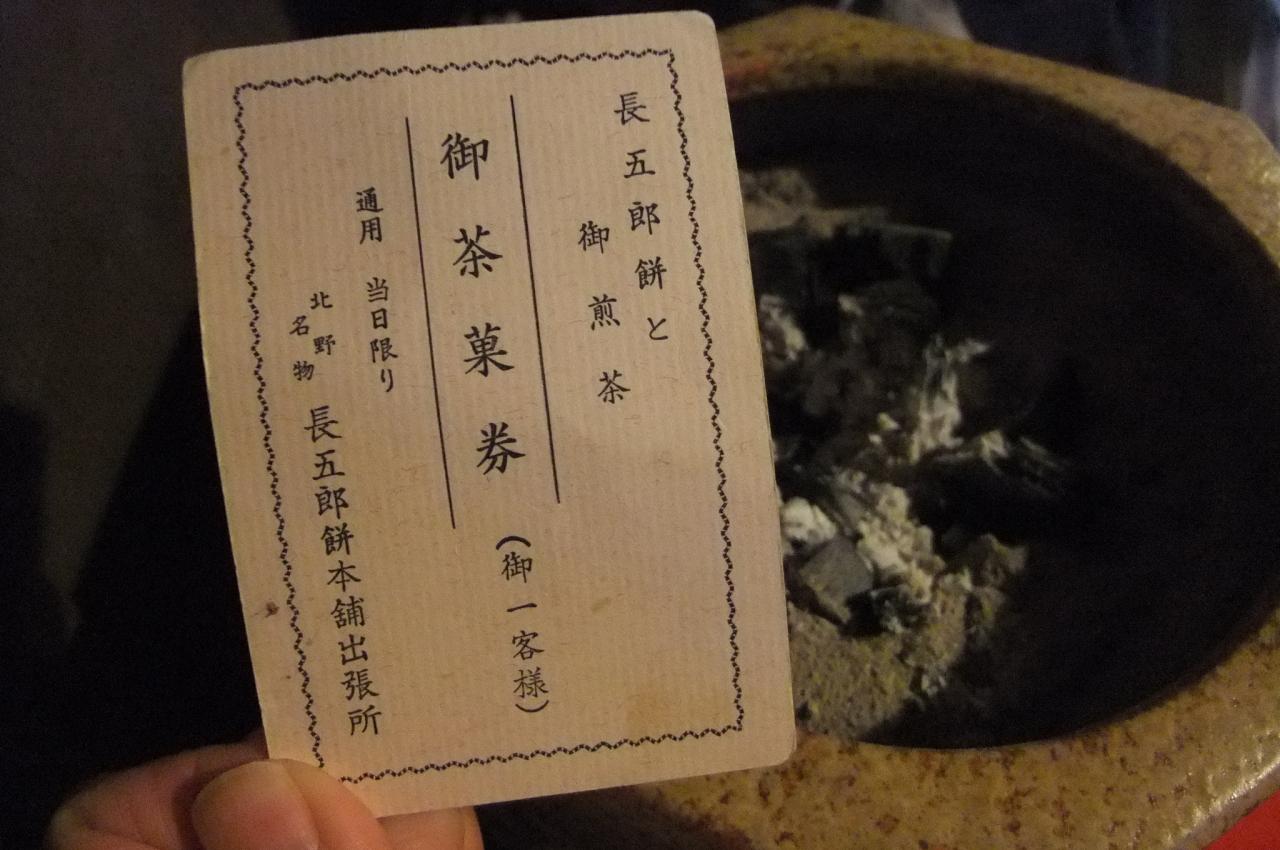 長五郎餅と
御煎茶
御茶菓券
（御一客様）
通用 当日限り
北野
名物
長五郎餅本舗出張所